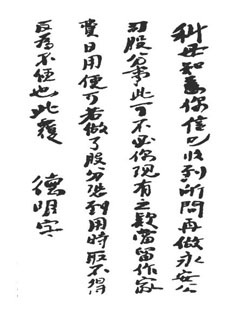 科母知悉你信已收到所問再做永安公
司股份事此可不必你現有之款當留作家
費日用便可若做了股份恐到用時取不得
反為不便也此覆
德明字